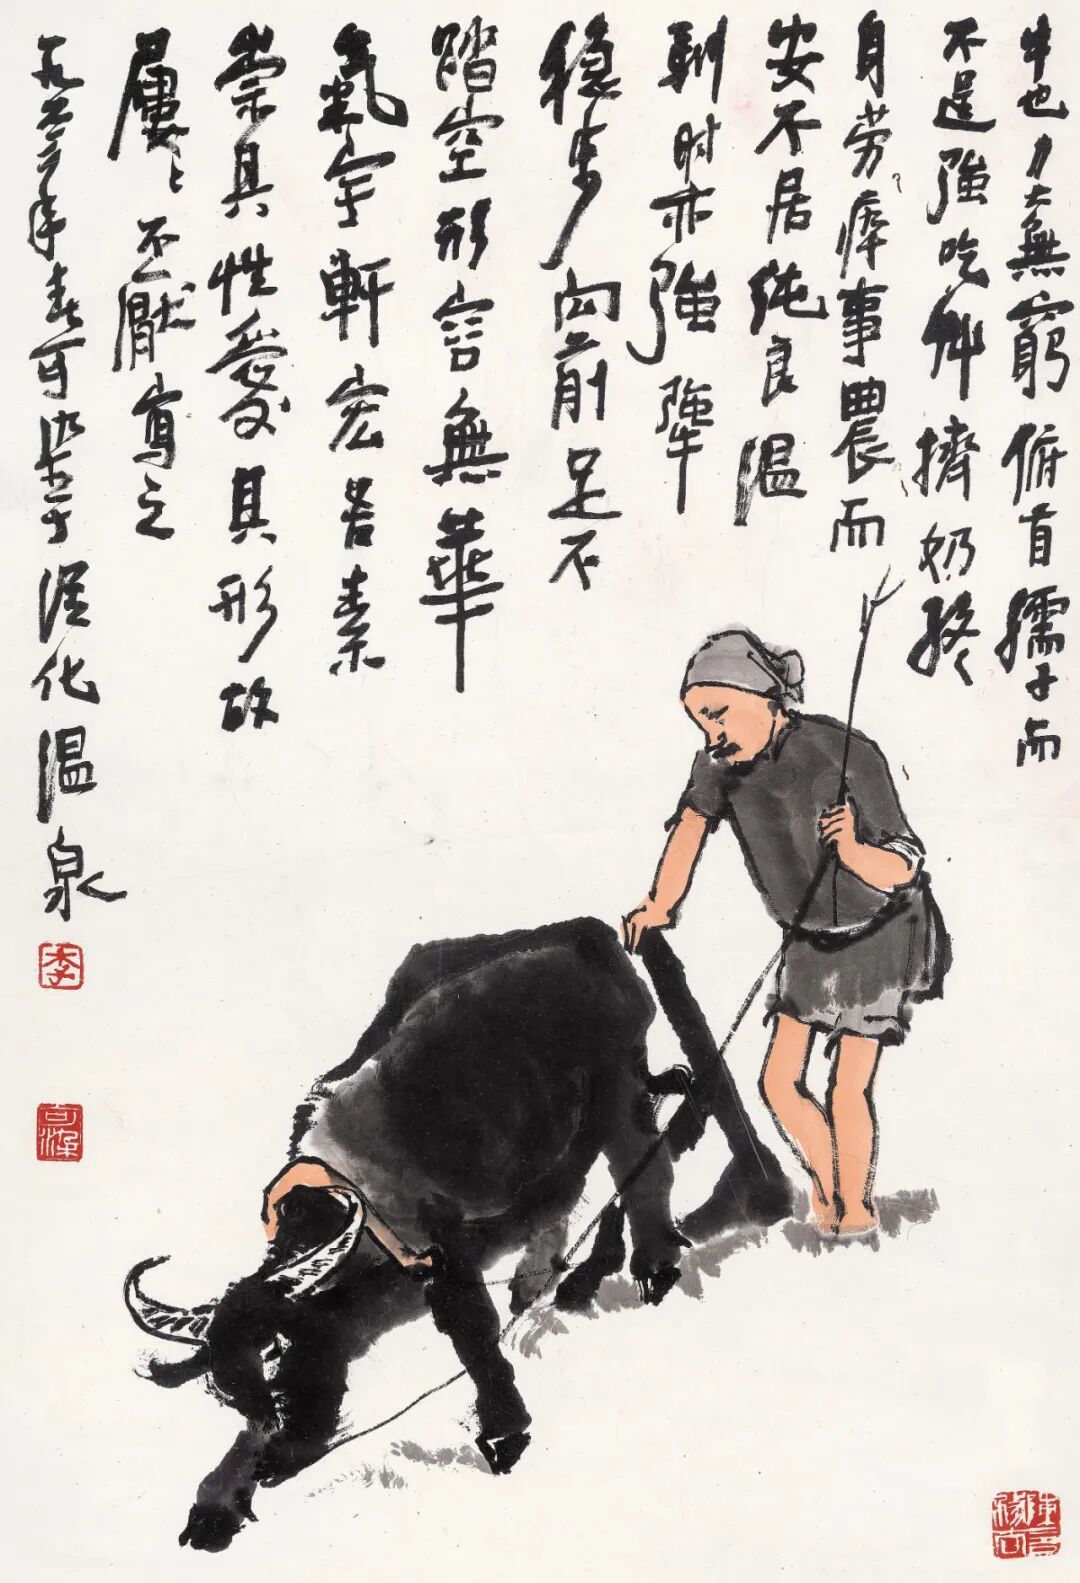 牛也力大無窮俯首孺子而
不逞強吃艸擠奶終
身劳瘁事農而
安不居纯良温
馴时亦強犟
稳步向前足不
踏空形容無華
氣宇軒宏吾素
崇其性愛其形故
屢〻不厭寫之
一九六二年春可染於從化温泉
李
可染
陳言務去